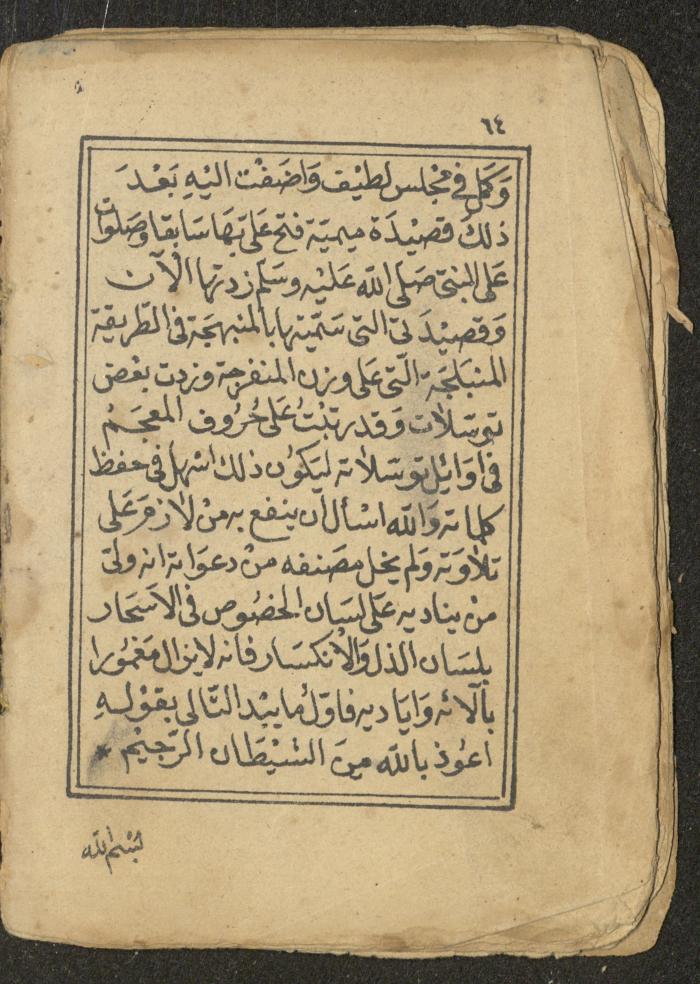 ٦٤
وَكَمُل في مَجْلس لطيْف وَاضَفْت اليْهِ بَعْدَ
ذلك قصيْدَة ميميّة فتح عَليّ بهَا سَابقا وصَلوات
عَلى النبيّ صَلى الله عَليْه وسَلّم زدتها الآن
وَقصيْدَتيّ التي سَمّيتها بالمنبهجَة في الطّريقة
المنبَلجَة الّتي عَلى وزن المنفرجة وزدت بعْض
توسّلات وَقد رتبْتُ عَلى حُرُوف المعجَمْ
في اوَائِل توسّلاته ليَكوُن ذلك اسْهل في حفظ
كلماته وَالله اسْأل ان ينفع به منْ لازمَ عَلى
تلاوَته وَلم يخل مصَنفه منْ دعوَاته انه وليّ
منْ يناديه عَلى لسَان الخصُوص في الاسْحَار
بلسَان الذل وَالانكسَار فانه لا يزال مَغمُورا
بآلائه وَايَاديه فاوّل مَا يبْدا التّالى بقوْلهِ
اعُوذ بالله مِنَ الشيْطَان الرّجيْم *
بسْم الله